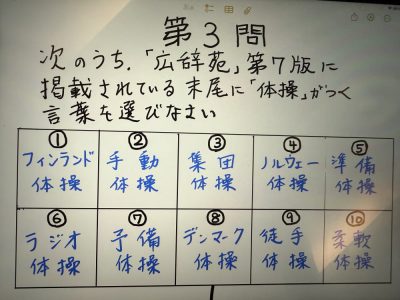 第3問
次のうち、「広辞苑」第7版に
掲載されている末尾に「体操」がつく
言葉を選びなさい
① ② ③ ④ ⑤
フィンランド体操 手動体操 集団体操 ノルウェー体操 準備体操
⑥ ⑦ ⑧ ⑨ ⑩
ラジオ体操 予備体操 デンマーク体操 徒手体操 柔軟体操